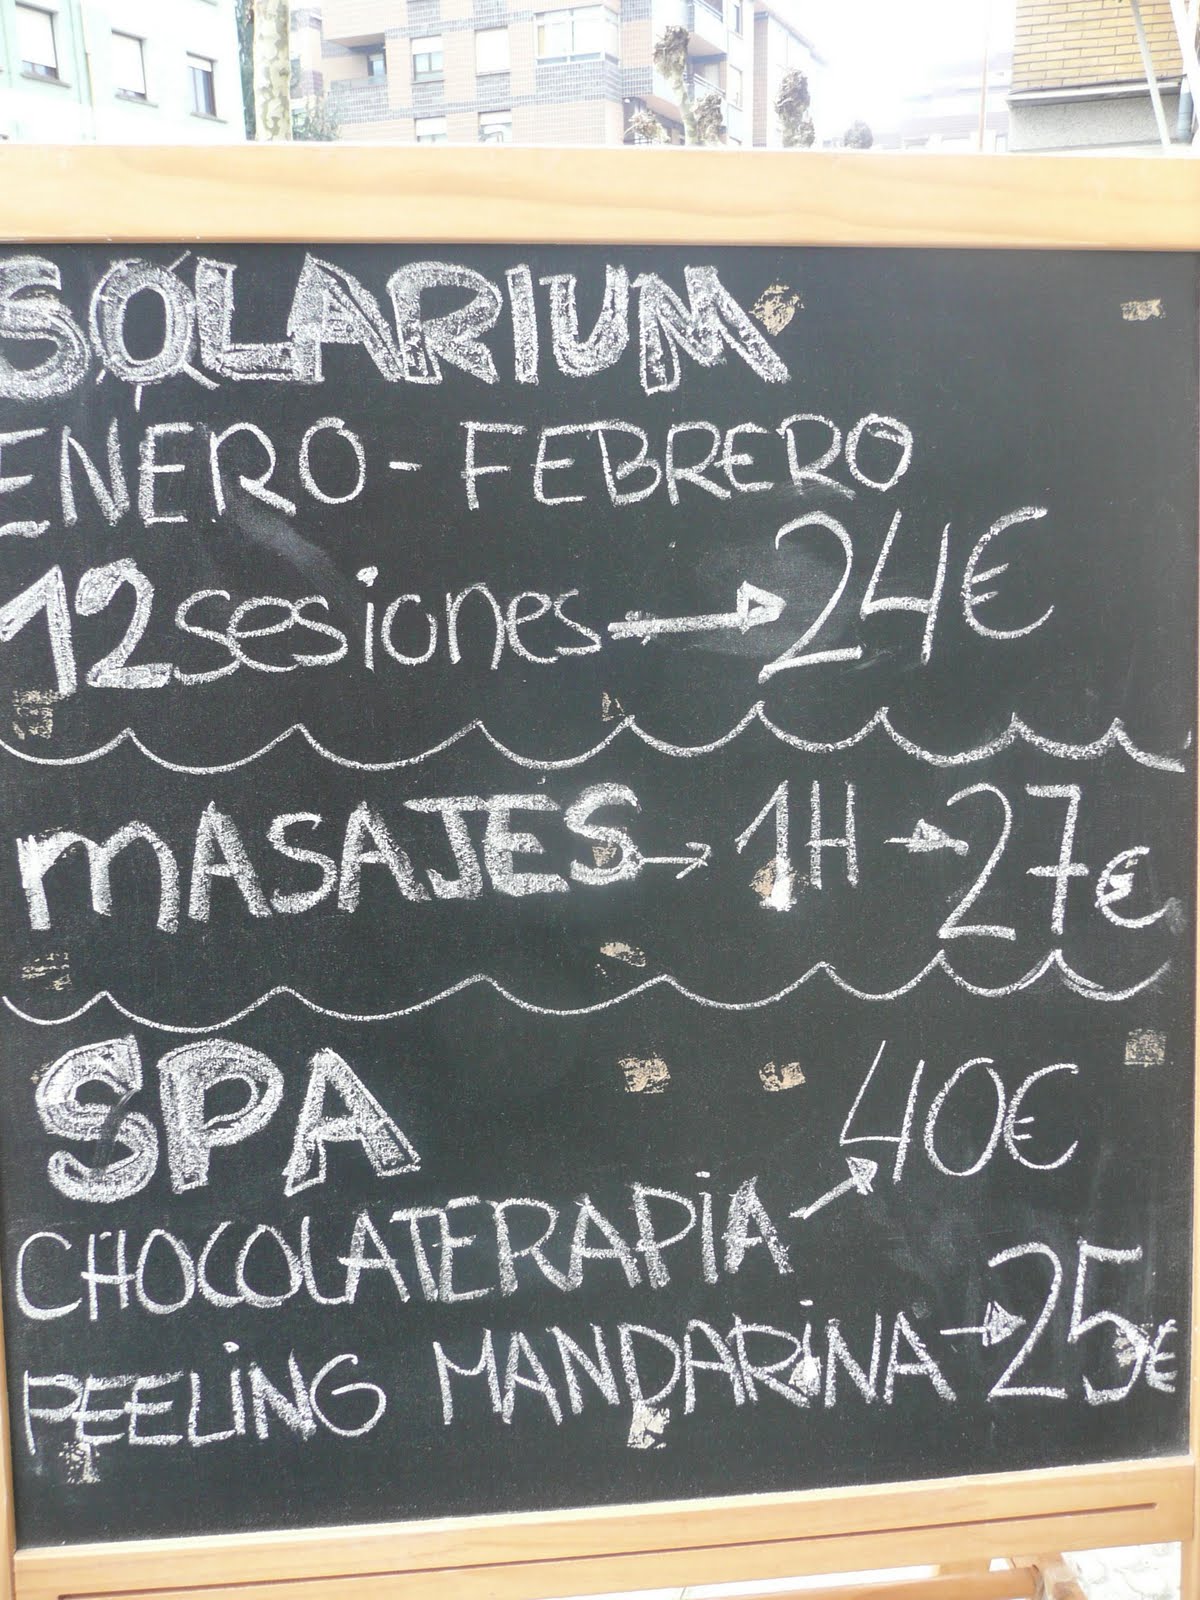 SOLARIUM
ENERO - FEBRERO
12 sesiones → 24€
MASAJES → 1H → 27€
SPA
CHOCOLATERAPIA → 40€
PEELING MANDARINA → 25€